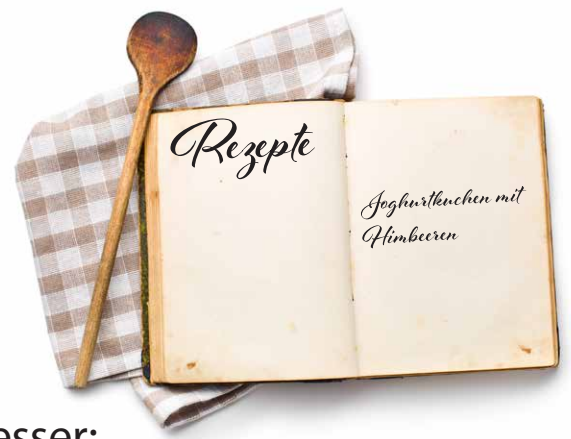 Rezepte
Joghurtkuchen mit
Himbeeren
esser: